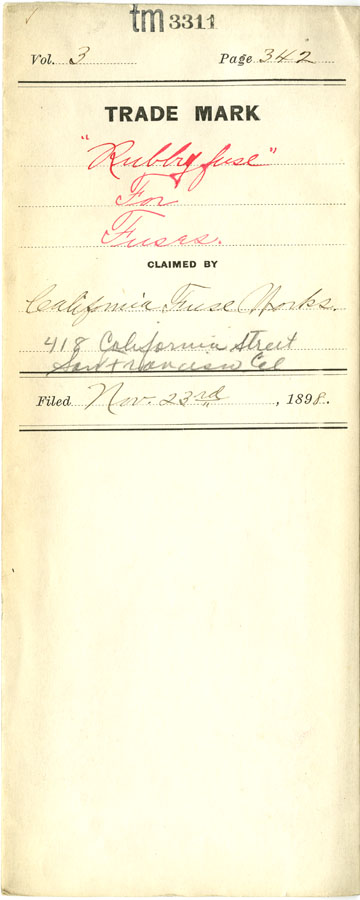 tm 3311
Vol. 3 Page 342
TRADE MARK
"Rubbyfuse"
For
Fuses.
CLAIMED BY
California Fuse Works.
418 California Street
San Francisco Cal
Filed Nov. 23rd, 1898.